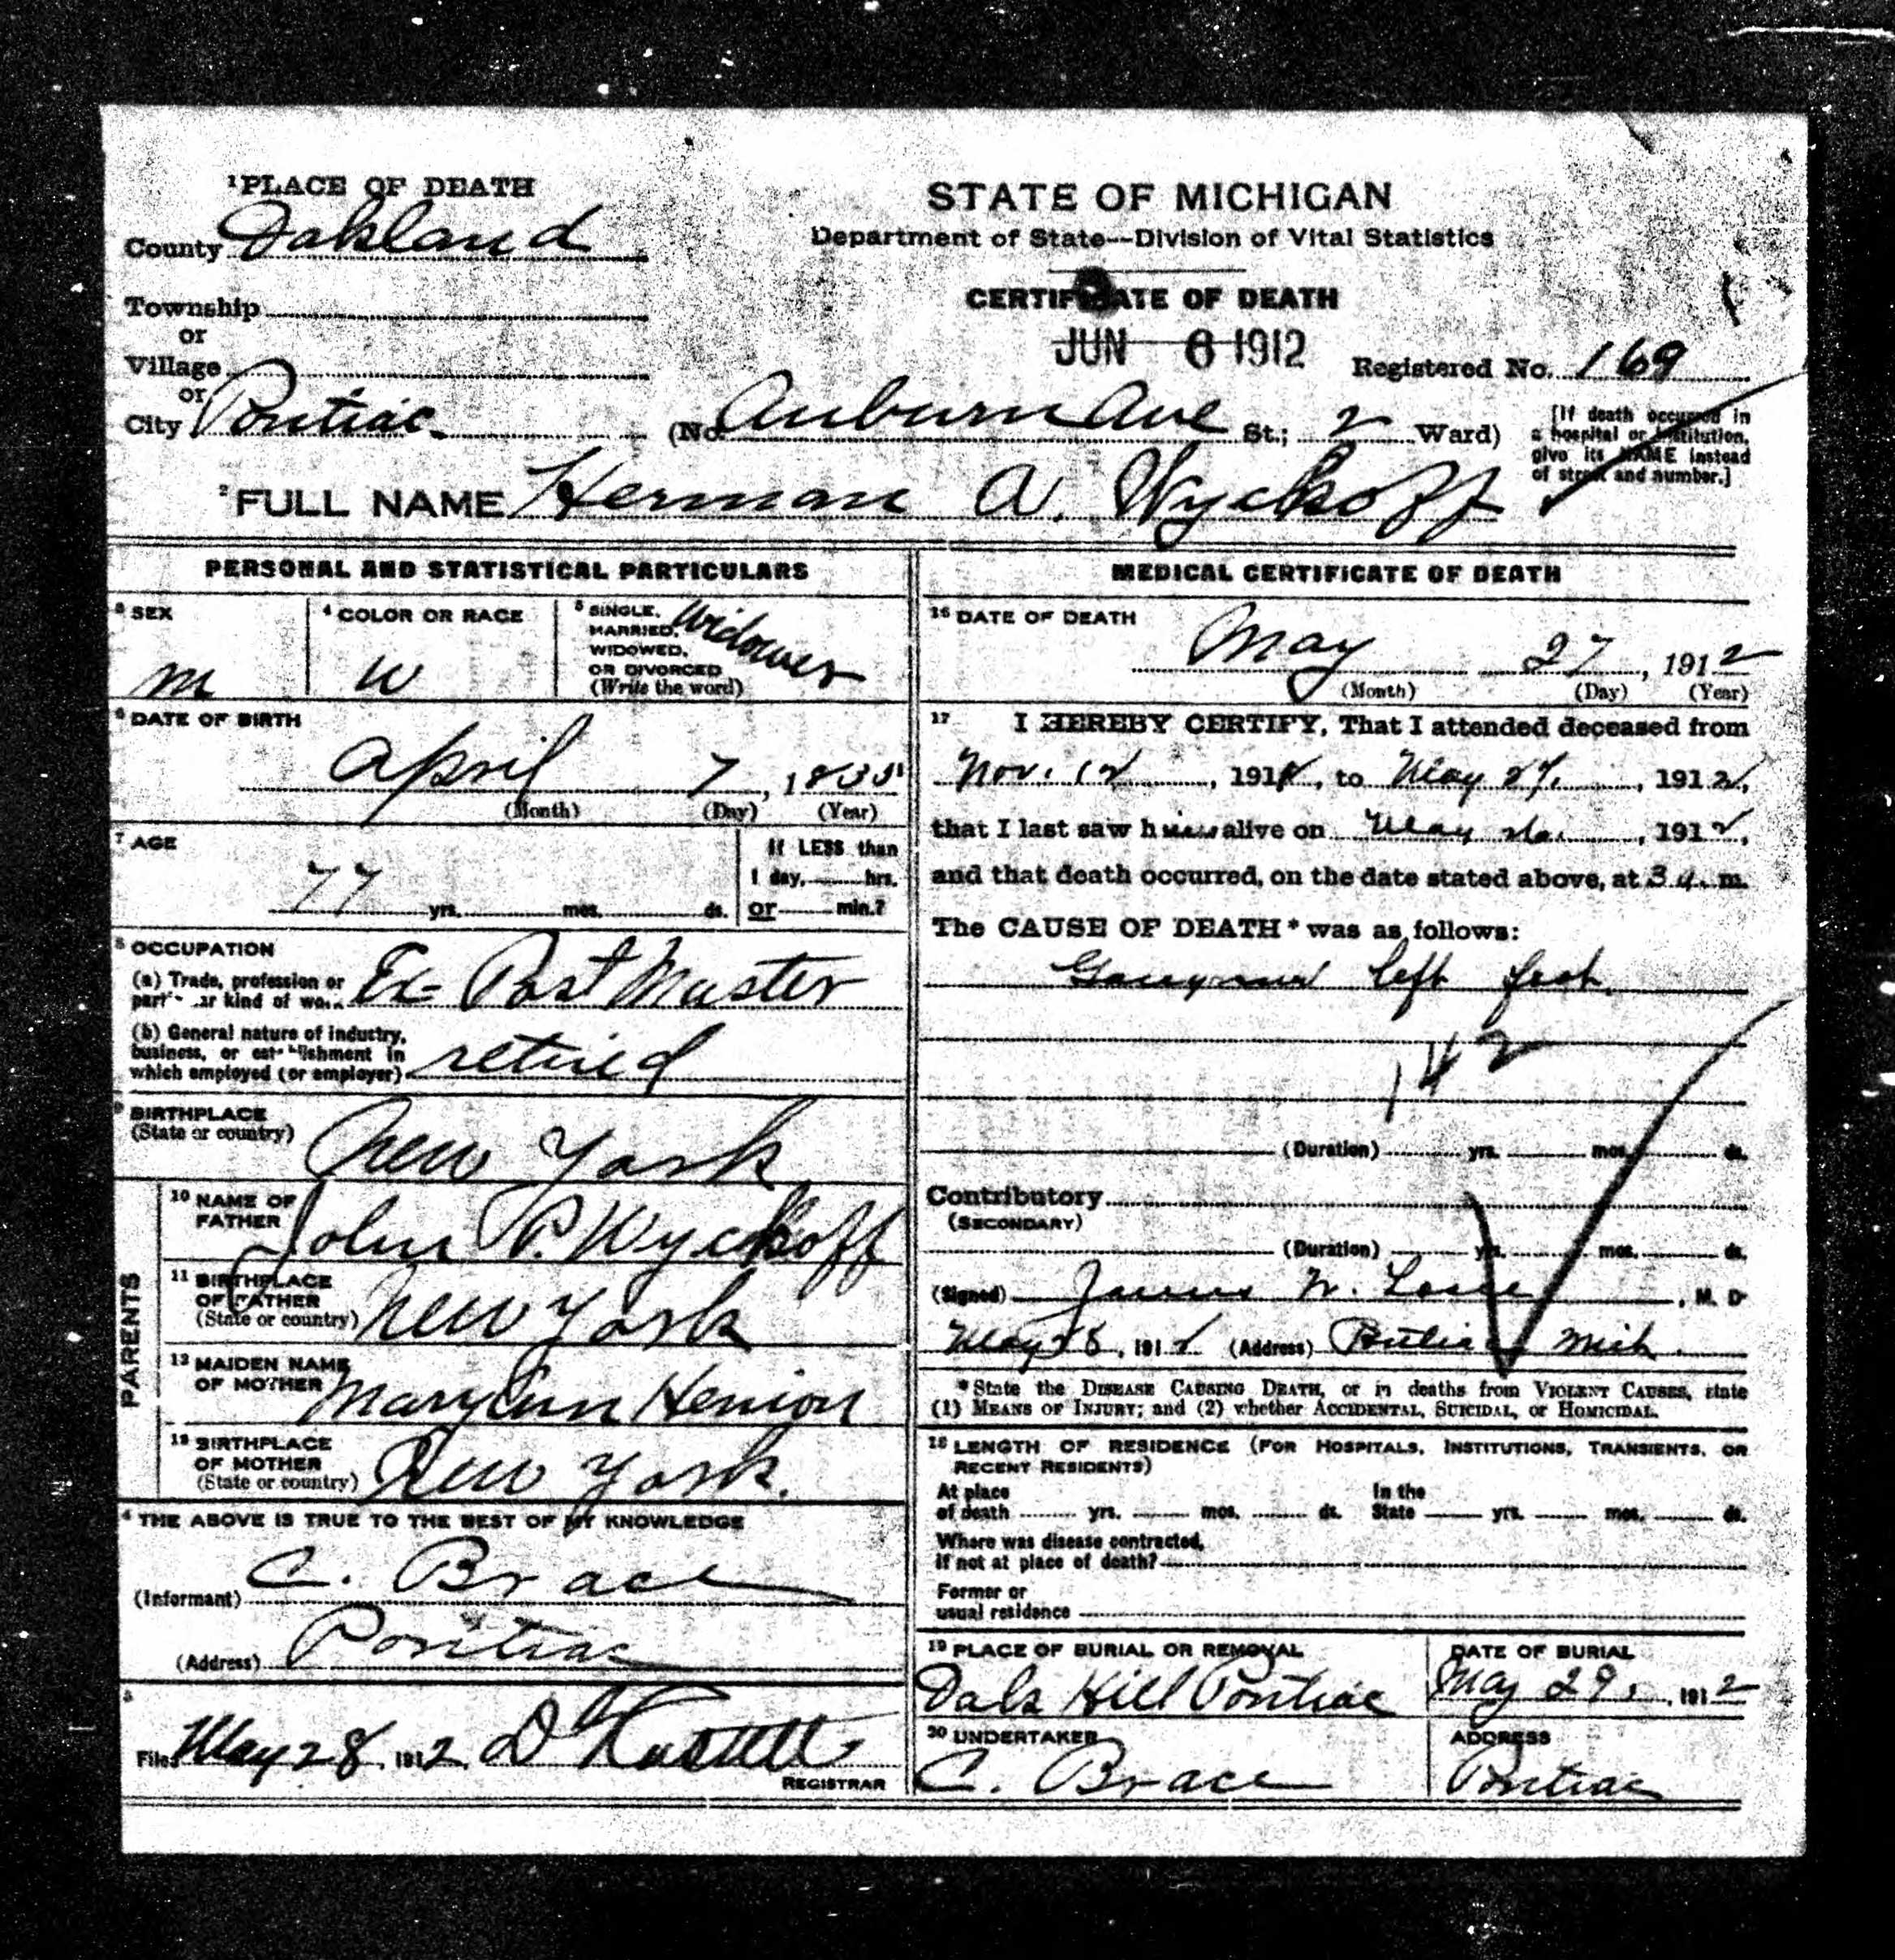 1 PLACE OF DEATH
County Oakland
Township
or
Village
or
City Pontiac
STATE OF MICHIGAN
Department of State--Division of Vital Statistics
CERTIFICATE OF DEATH
JUN 6 1912
Registered No. 169
(No. Auburn Ave St.; 2 Ward)
[If death occurred in
a hospital or institution,
give its NAME instead
of street and number.]
2 FULL NAME Herman A. Wyckoff
PERSONAL AND STATISTICAL PARTICULARS
3 SEX
m
4 COLOR OR RACE
w
5 SINGLE,
MARRIED,
WIDOWED,
OR DIVORCED
(Write the word)
Widower
6 DATE OF BIRTH
April 7, 1835
(Month) (Day) (Year)
7 AGE
77 yrs. mos. ds.
If LESS than
1 day, hrs.
or min.?
8 OCCUPATION
(a) Trade, profession or
kind of Ex- Post Master
(b) General nature of industry,
business, or establishment in
which employed (or employer) retired
9 BIRTHPLACE
(State or country) New York
PARENTS
10 NAME OF
FATHER John P. Wyckoff
11 BIRTHPLACE
OF FATHER
(State or country) New York
12 MAIDEN NAME
OF MOTHER Mary Ann Henion
13 BIRTHPLACE
OF MOTHER
(State or country) New York.
THE ABOVE IS TRUE TO THE BEST OF MY KNOWLEDGE
(Informant) C. Brace
(Address) Pontiac
Filed May 28, 1912
REGISTRAR
MEDICAL CERTIFICATE OF DEATH
16 DATE OF DEATH
May 27, 1912
(Month) (Day) (Year)
17 I HEREBY CERTIFY, That I attended deceased from
Nov. 12, 191 , to May 27, 1912,
that I last saw him alive on May , 1912,
and that death occurred, on the date stated above, at 3 a. m.
The CAUSE OF DEATH* was as follows:
left foot.
142
(Duration) yrs. mos. ds.
Contributory
(SECONDARY)
(Duration) yrs. mos. ds.
(Signed) James , M. D
May 28, 1912 (Address) Pontiac Mich.
*State the DISEASE CAUSING DEATH, or in deaths from VIOLENT CAUSES, state
(1) MEANS OF INJURY; and (2) whether ACCIDENTAL, SUICIDAL, or HOMICIDAL.
18 LENGTH OF RESIDENCE (FOR HOSPITALS, INSTITUTIONS, TRANSIENTS, OR
RECENT RESIDENTS)
At place
of death yrs. mos. ds.
In the
State yrs. mos. ds.
Where was disease contracted,
if not at place of death?
Former or
usual residence
19 PLACE OF BURIAL OR REMOVAL
Oak Hill Pontiac
DATE OF BURIAL
May 29, 1912
20 UNDERTAKER
C. Brace
ADDRESS
Pontiac